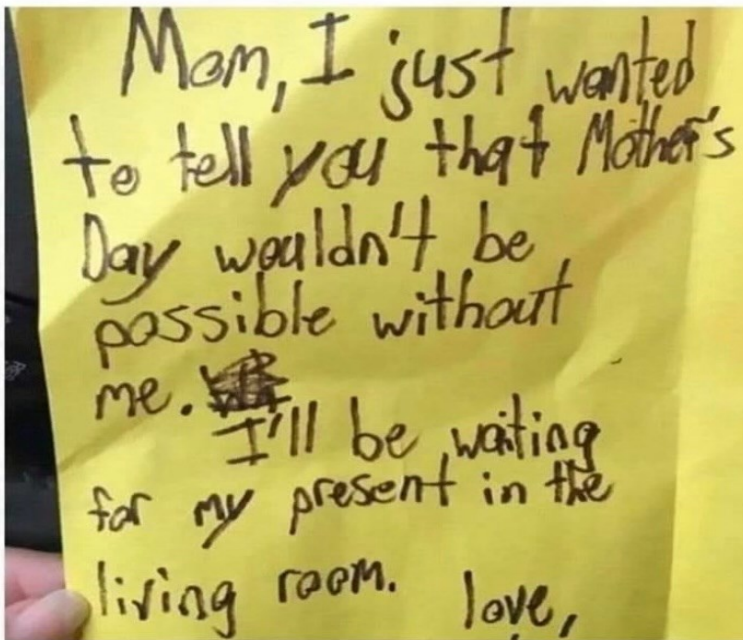 Mom, I just wanted
to tell you that Mother's
Day wouldn't be
possible without
me.
I'll be waiting
for my present in the
living room. love,